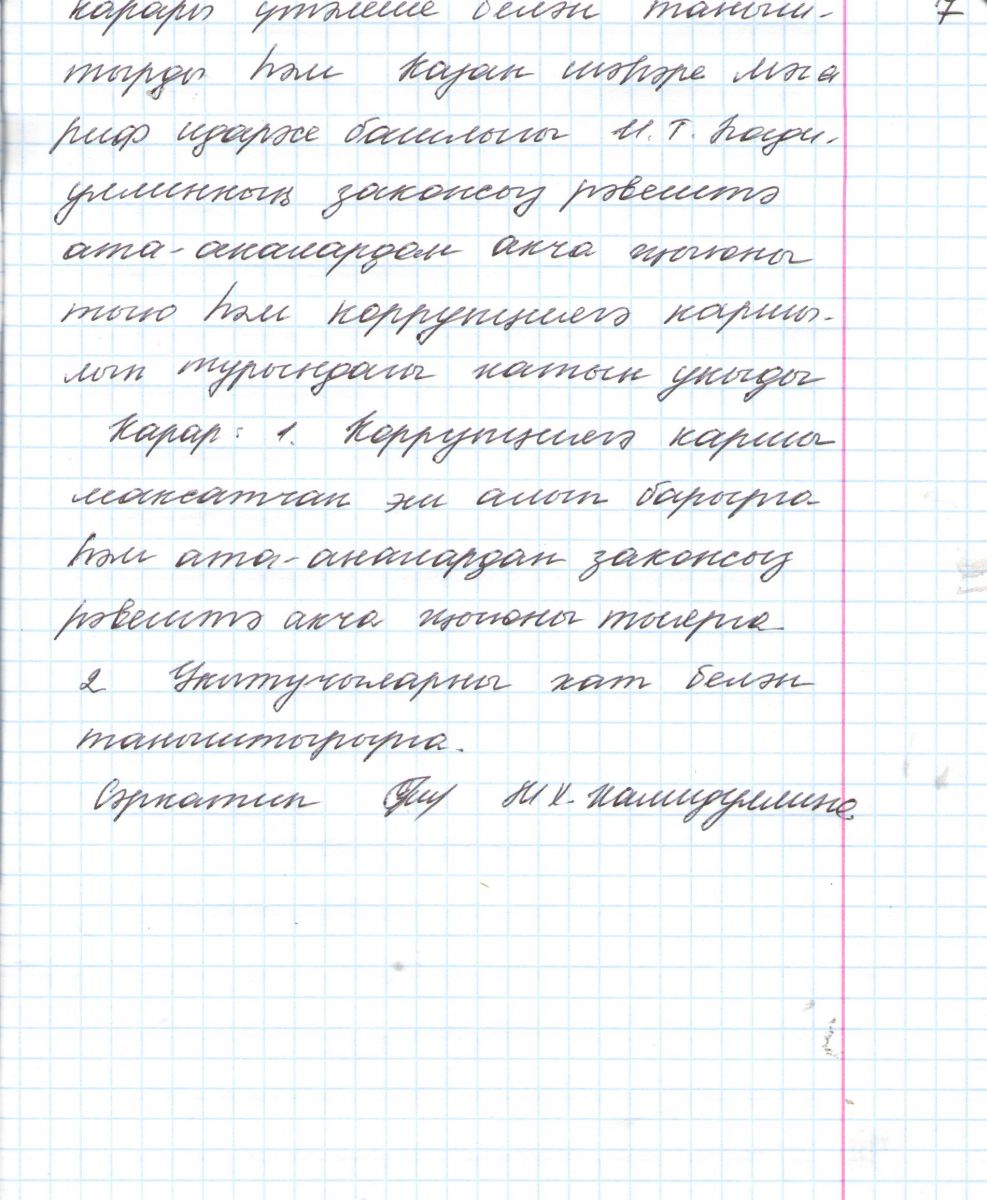 карары үтәлеше белән таныш- 7
тырды һәм Казан шәһәре Мәга
риф идарәсе башлыгы И.Т. Һади-
уллинның законсыз рәвештә
ата-аналардан акча җыюны
тыю һәм коррупциягә каршы-
лык турындагы хатын укыды
Карар: 1. Коррупциягә каршы
максатчан эш алып барырга
һәм ата-аналардан законсыз
рәвештә акча җыюны тыярга
2 Укытучыларны хат белән
таныштырырга.
Сәркатип Н.Х. Хамидуллина